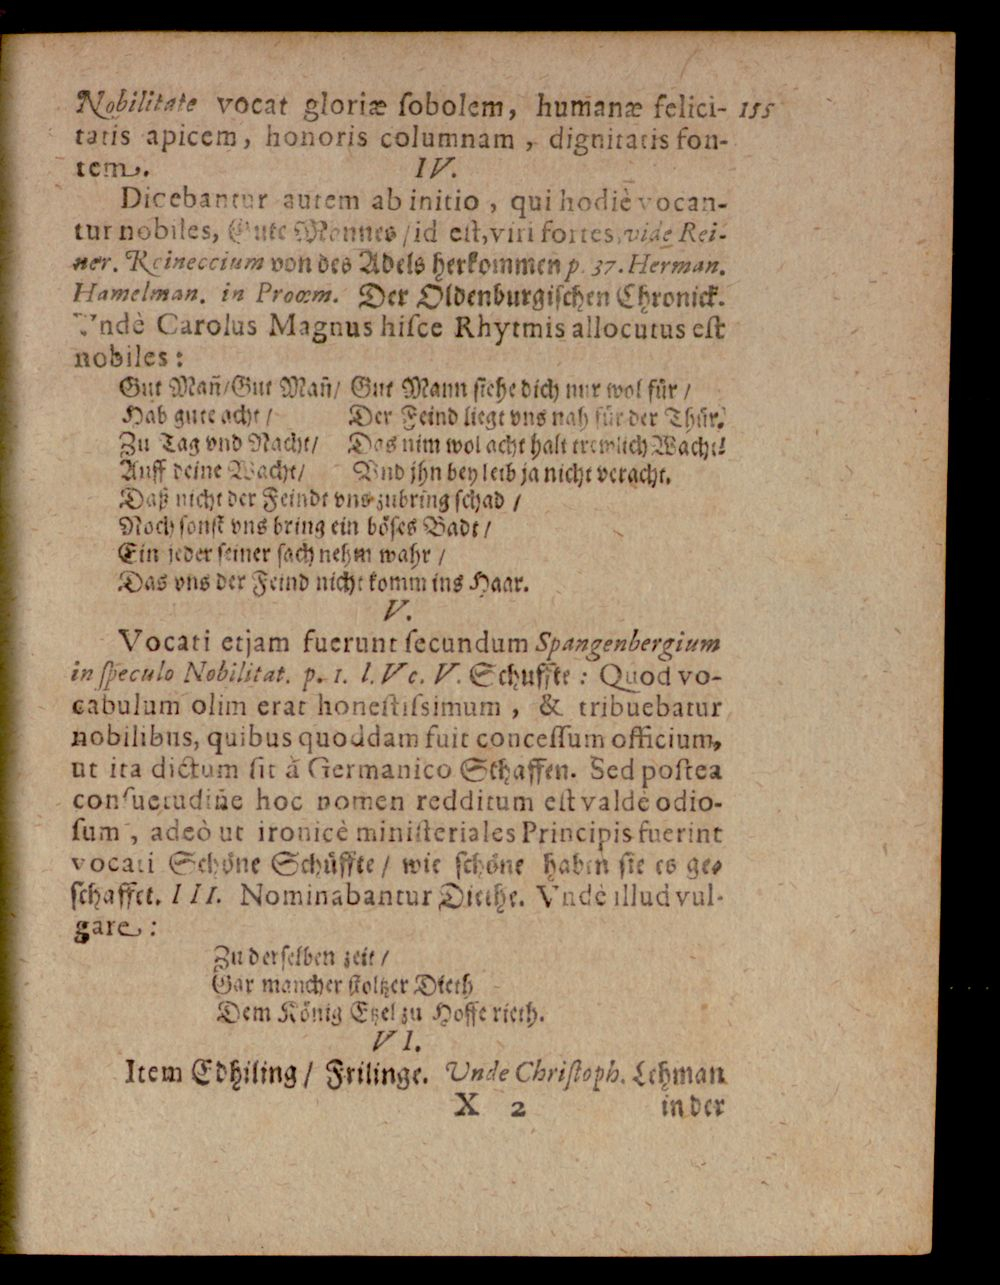 Nobilitate vocat gloriæ ſobolem, humanæ felici- 155
tatis apicem, honoris columnam, dignitatis fon-
tem. IV.
Dicebantur autem ab initio, qui hodiè vocan-
tur nobiles, Gute Mannes / id eſt, viri fortes, vide Rei-
ner. Reineccium von des Adels herkommen p. 37. Herman.
Hamelman. in Proœm. Der Oldenburgiſchen Chronick.
Vndè Carolus Magnus hiſce Rhytmis allocutus eſt
nobiles:
Gut Mañ / Gut Mañ / Gut Mann ſiehe dich nur wol für /
Hab gute acht / Der Feind liegt vns nah für der Thür.
Zu Tag vnd Nacht / Das nim wol acht halt trewlich Wacht!
Auff deine Wacht / Vnd jhn bey leib ja nicht veracht.
Daß nicht der Feindt vns zubring ſchad /
Noch ſonſt vns bring ein böſes Badt /
Ein jeder ſeiner ſach nehm wahr /
Das vns der Feind nicht komm ins Haar.
V.
Vocati etjam fuerunt ſecundum Spangenbergium
in ſpeculo Nobilitat. p. 1. l. V c. V. Schuffte: Quod vo-
cabulum olim erat honeſtiſsimum, & tribuebatur
nobilibus, quibus quoddam fuit conceſſum officium,
ut ita dictum ſit á Germanico Schaffen. Sed poſtea
conſuetudiñe hoc nomen redditum eſt valdè odio-
ſum, adeò ut ironicè miniſteriales Principis fuerint
vocati Schöne Schüffte / wie ſchöne haben ſie es ge-
ſchaffet. III. Nominabantur Diethe. Vndè illud vul-
gare:
Zu derſelben zeit /
Gar mancher ſtoltzer Dieth
Dem König Etzel zu Hoffe rieth.
VI.
Item Edhiling / Frilinge. Unde Chriſtoph. Lehman
X 2 in der